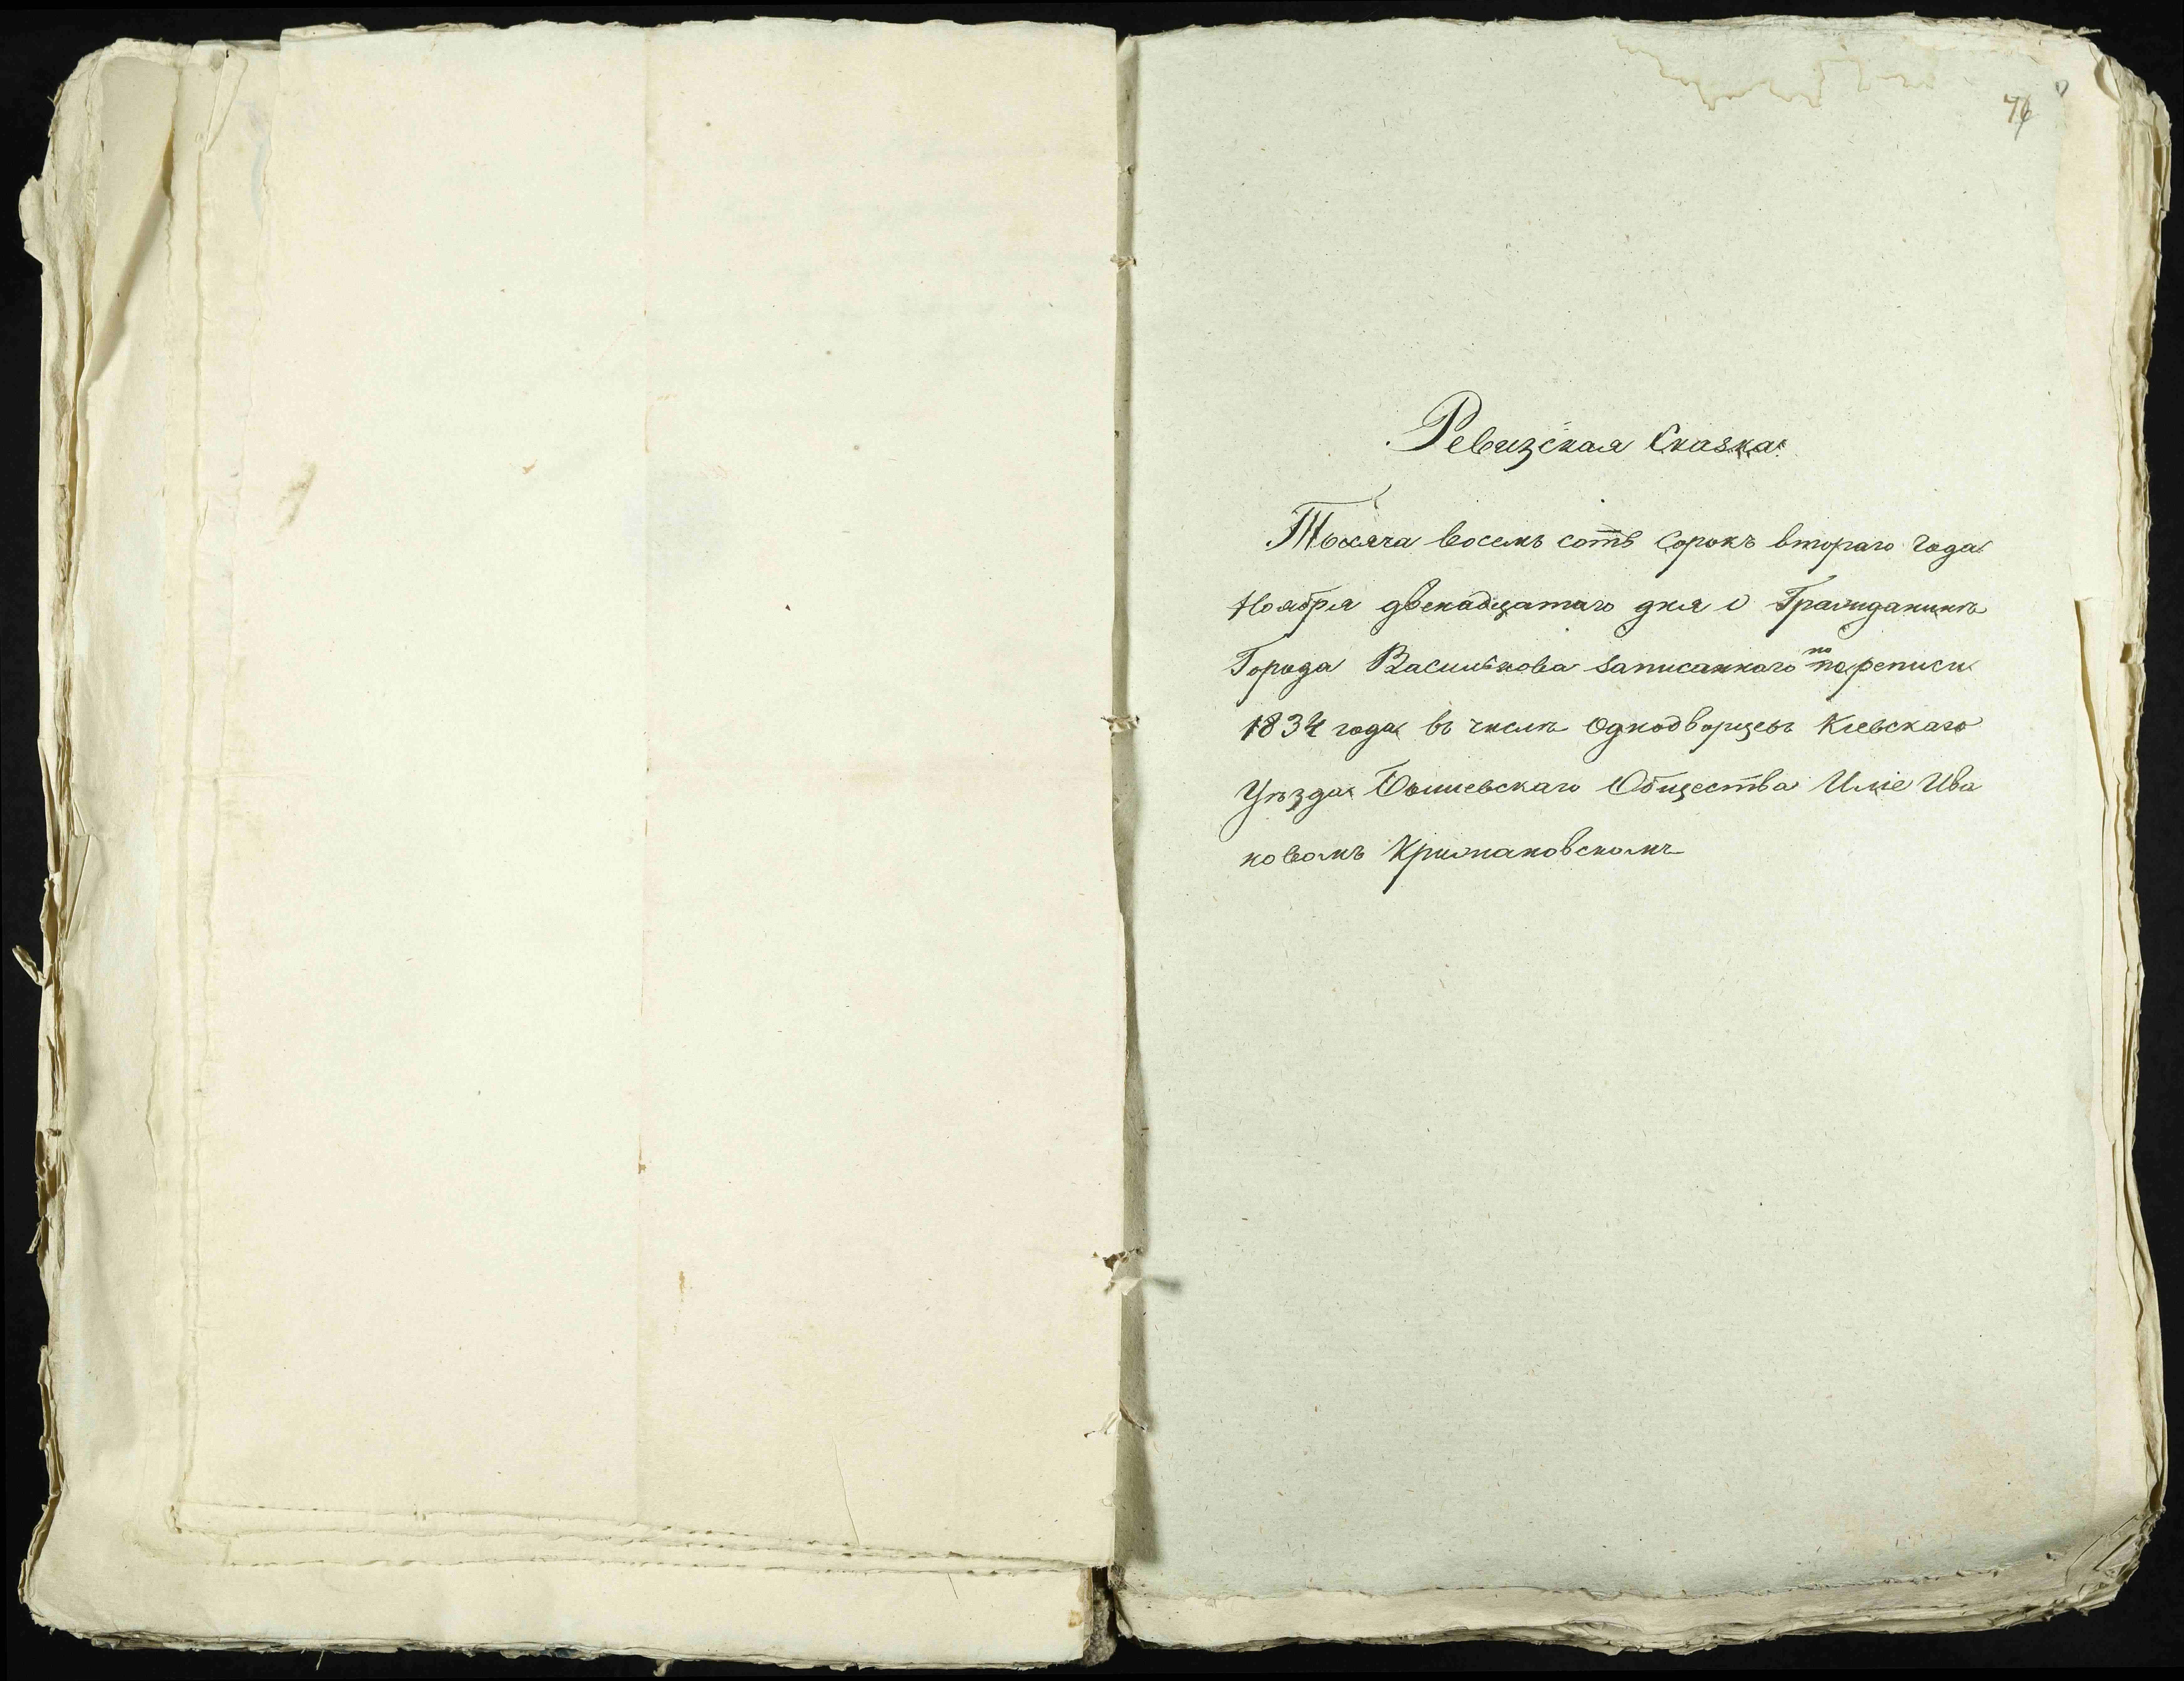 76
Ревизская Сказка
Тысяча восемь сотъ сорокъ втораго года
Ноября двенадцатаго дня о Гражданинѣ
Города Василькова записаннаго по переписи
1834 года въ числѣ Однодворцевъ Кіевскаго
Уѣзда Бышевскаго Общества Илiе Ива
новомъ